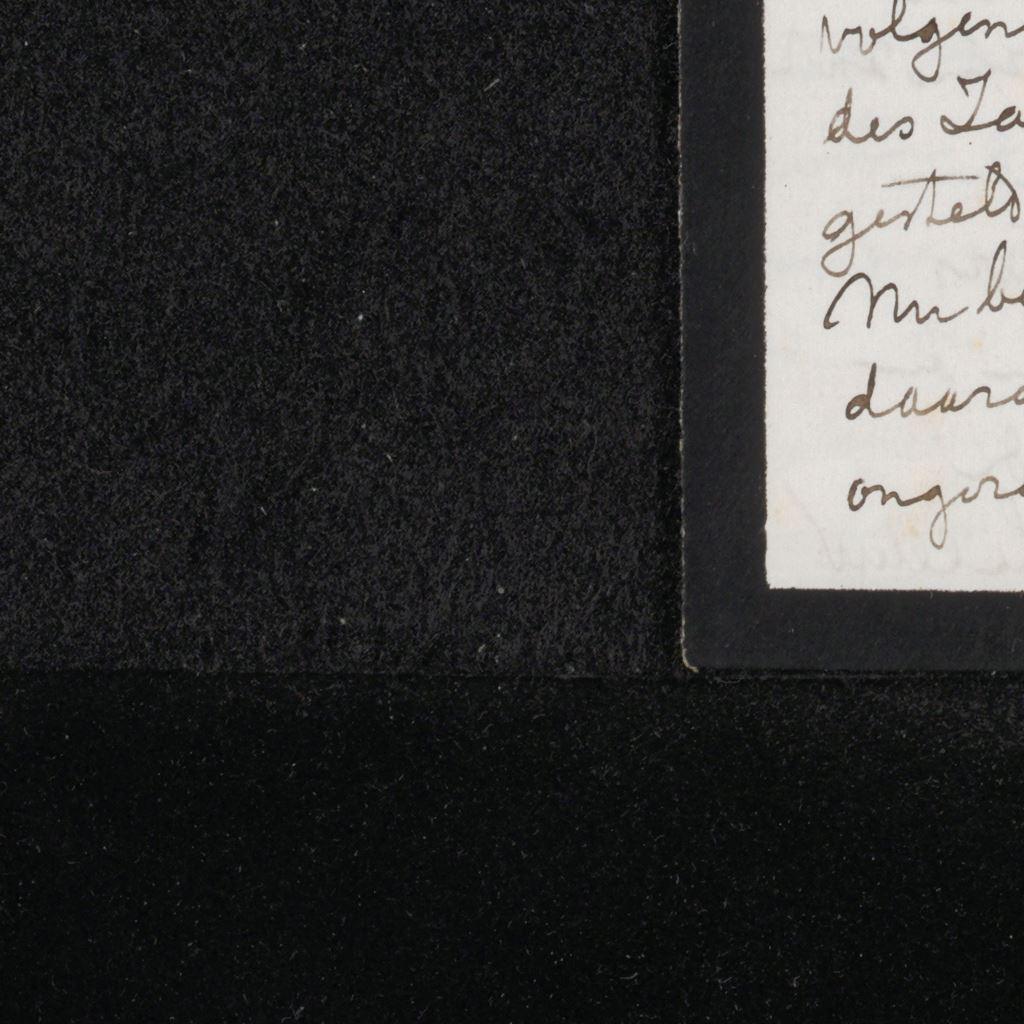 volgen
des Za
gesteld
Nu be
daara
ongera